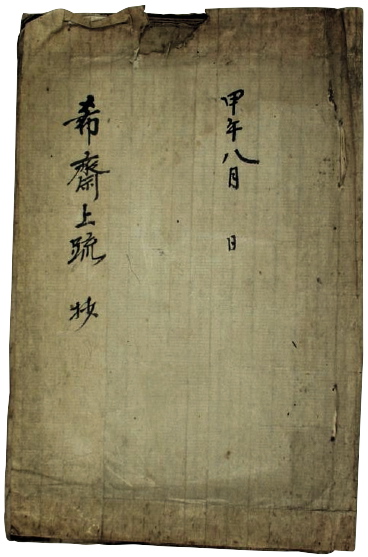 甲午八月 日
希齋上疏 抄